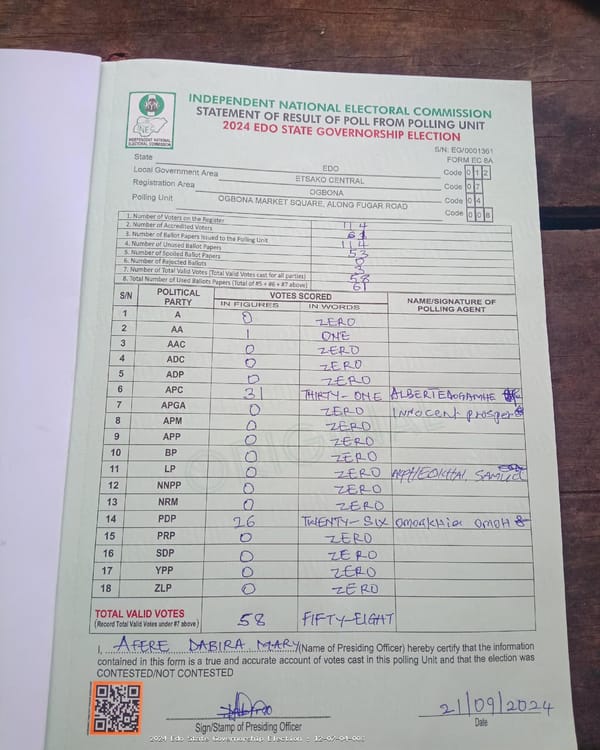 INDEPENDENT NATIONAL ELECTORAL COMMISSION
STATEMENT OF RESULT OF POLL FROM POLLING UNIT
2024 EDO STATE GOVERNORSHIP ELECTION
INEC
INDEPENDENT NATIONAL ELECTORAL COMMISSION
S/N: EG/0001361
FORM EC 8A
State EDO Code 0 1 2
Local Government Area ETSAKO CENTRAL Code 0 7
Registration Area OGBONA Code 0 4
Polling Unit OGBONA MARKET SQUARE, ALONG FUGAR ROAD Code 0 0 8
1. Number of Voters on the Register 114
2. Number of Accredited Voters 61
3. Number of Ballot Papers Issued to the Polling Unit 114
4. Number of Unused Ballot Papers 53
5. Number of Spoiled Ballot Papers 0
6. Number of Rejected Ballots 3
7. Number of Total Valid Votes (Total Valid Votes cast for all parties) 58
8. Total Number of Used Ballots Papers (Total of #5 + #6 + #7 above) 61
S/N POLITICAL PARTY VOTES SCORED NAME/SIGNATURE OF POLLING AGENT
IN FIGURES IN WORDS
1 A 0 ZERO
2 AA 1 ONE
3 AAC 0 ZERO
4 ADC 0 ZERO
5 ADP 0 ZERO
6 APC 31 THIRTY-ONE ALBERT
7 APGA 0 ZERO Innocent prosper
8 APM 0 ZERO
9 APP 0 ZERO
10 BP 0 ZERO
11 LP 0 ZERO
12 NNPP 0 ZERO
13 NRM 0 ZERO
14 PDP 26 TWENTY-SIX OMOH
15 PRP 0 ZERO
16 SDP 0 ZERO
17 YPP 0 ZERO
18 ZLP 0 ZERO
TOTAL VALID VOTES 58 FIFTY-EIGHT
(Record Total Valid Votes under #7 above)
I, AFERE DABIRA MARY (Name of Presiding Officer) hereby certify that the information
contained in this form is a true and accurate account of votes cast in this polling Unit and that the election was
CONTESTED/NOT CONTESTED
21/09/2024
Sign/Stamp of Presiding Officer Date
2024 Edo State Governorship Election - 12-07-04-008